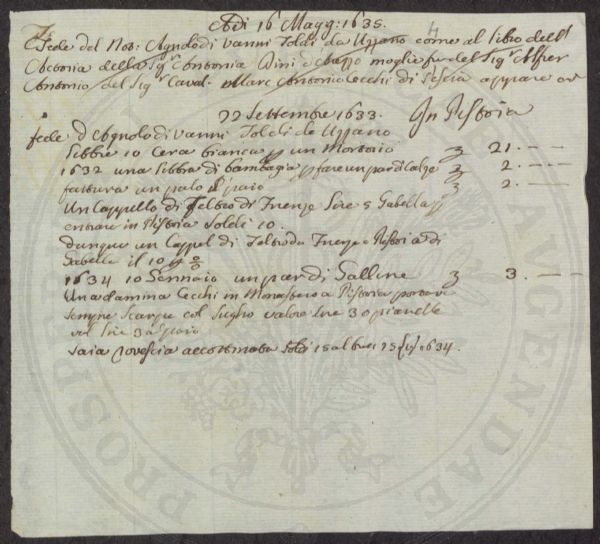 Adi 16 Magg: 1635.
Fede del Not: Agnolo di Vanni Toldi da Uzzano come al libro dell'
della Sigra Antonia moglie fu del Sigr Alfier
Antonio del Sigr Caval. Marc Antonio Cecchi di Pescia appare
22 Settembre 1633. In Pistoia
fede d'Agnolo di Vanni Toldi da Uzzano
Libbre 10 Cera bianca p un Mortorio 21. — —
1632 una Libbra di bambagia p fare un par di Calze 2. — —
fattura un paio 2. — —
Un Cappello di Feltro di Firenze Lire 5 Gabella p
entrare in Pistoia Soldi 10.
dunque un Cappel di Feltro da Firenze a Pistoia di
Gabella il 10 p %
1634 10 Gennaio un par di Galline 3. — —
Una Cecchi in Monastero a Pistoia portare
sempre Scarpe col Sughero valore Lire 3 o pianelle
val Lire 3 il paio
Saia rovescia accottonata Soldi 15 al braccio 1634.
PROSPER AGENDAE